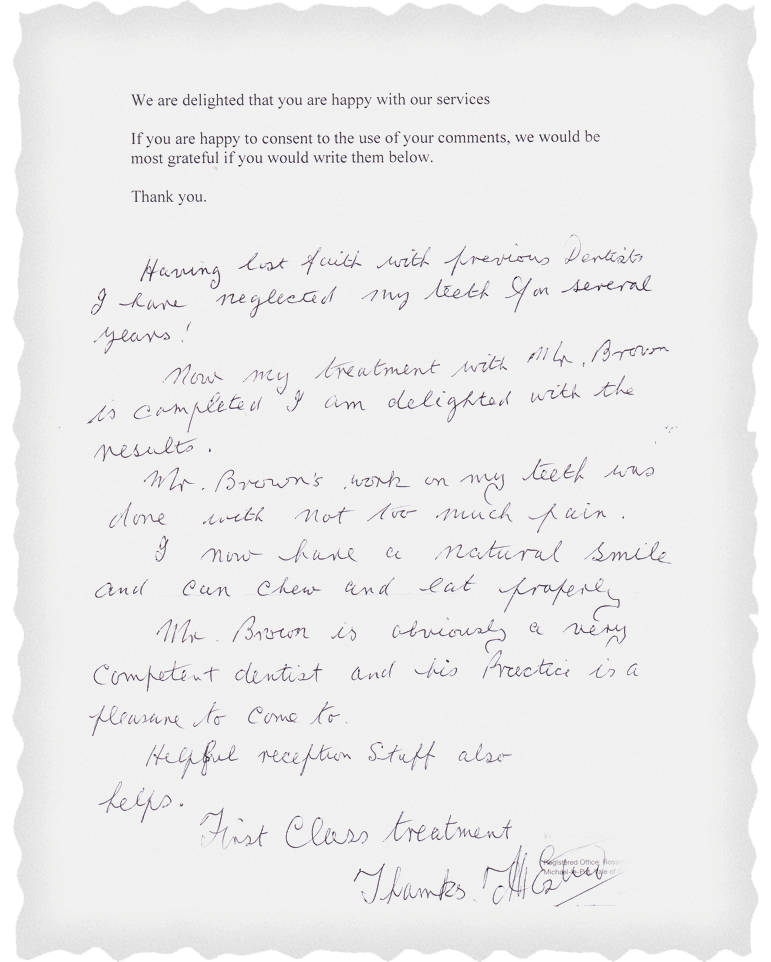 We are delighted that you are happy with our services
If you are happy to consent to the use of your comments, we would be
most grateful if you would write them below.
Thank you.
Having lost faith with previous Dentists
I have neglected my teeth for several
years!
Now my treatment with Mr. Brown
is completed I am delighted with the
results.
Mr. Brown's work on my teeth was
done with not too much pain.
I now have a natural smile
and can chew and eat properly
Mr. Brown is obviously a very
competent dentist and his Practice is a
pleasure to come to.
Helpful reception Staff also
helps.
First Class treatment
Thanks.
Registered Office:
Michael-le-Pit, Vale of